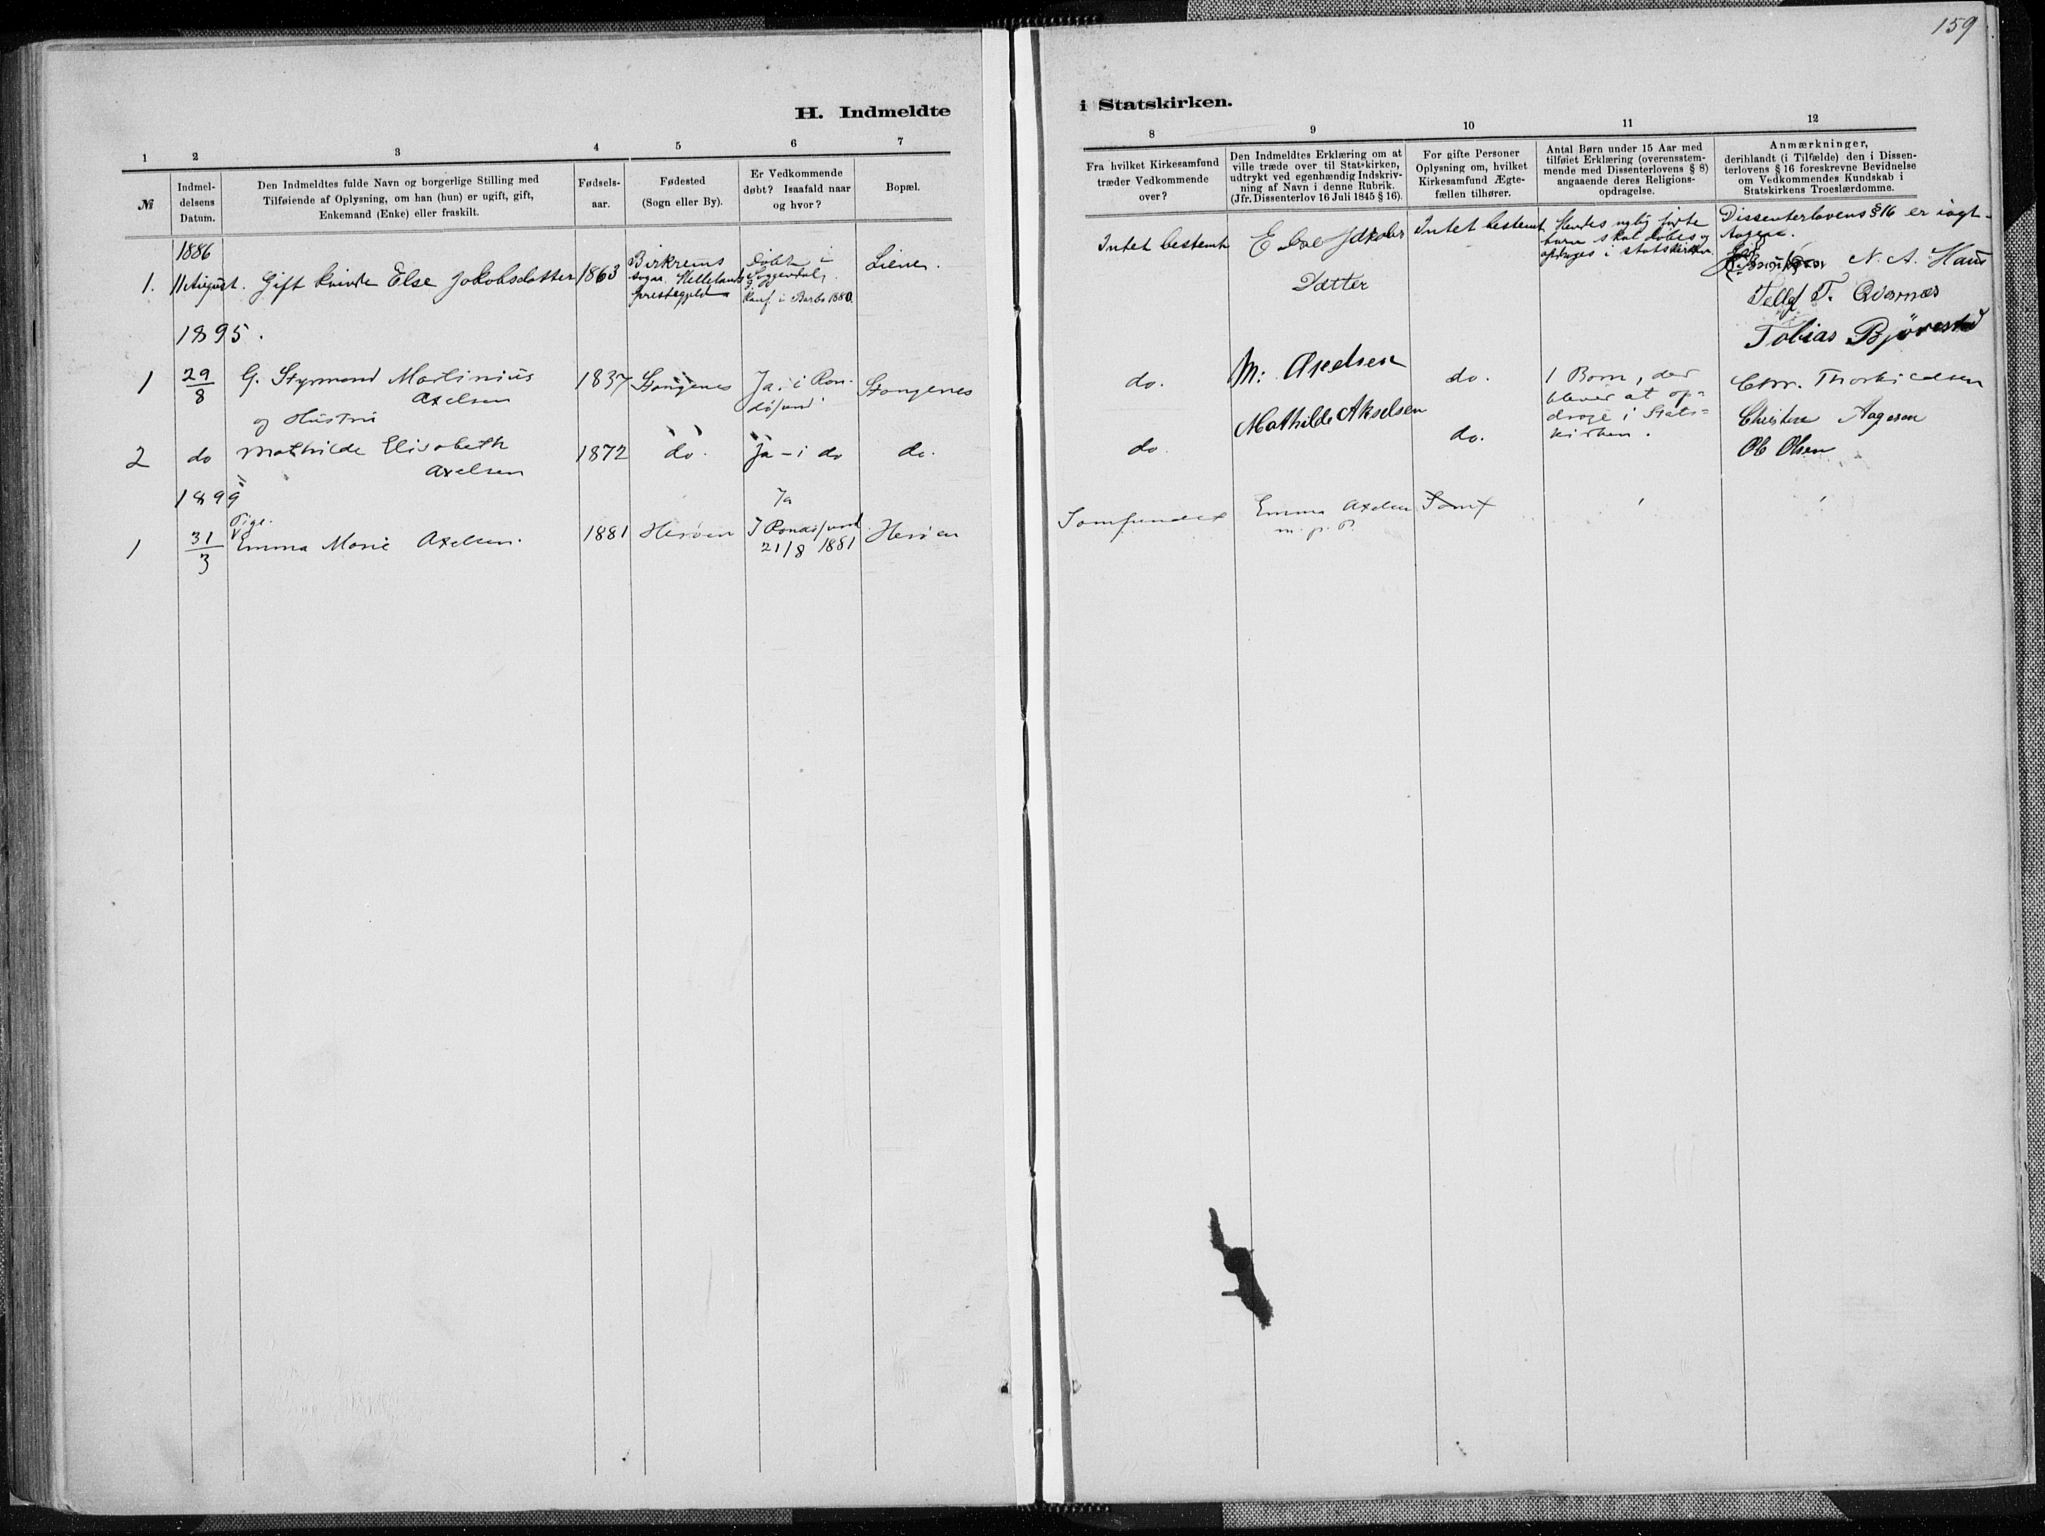 159
H. Indmeldte i Statskirken.
1 2 3 4 5 6 7 8 9 10 11 12
№
Indmel-
delsens
Datum.
Den Indmeldtes fulde Navn og borgerlige Stilling med
Tilføiende af Oplysning, om han (hun) er ugift, gift,
Enkemand (Enke) eller fraskilt.
Fødsels-
aar.
Fødested
(Sogn eller By).
Er Vedkommende
døbt? Isaafald naar
og hvor?
Bopæl.
Fra hvilket Kirkesamfund
træder Vedkommende
over?
Den Indmeldtes Erklæring om at
ville træde over til Statskirken,
udtrykt ved egenhændig Indskriv-
ning af Navn i denne Rubrik.
(Jfr. Dissenterlov 16 Juli 1845 § 16).
For gifte Personer
Oplysning om, hvilket
Kirkesamfund Ægte-
fællen tilhører.
Antal Børn under 15 Aar med
tilføiet Erklæring (overensstem-
mende med Dissenterlovens § 8)
angaaende deres Religions-
opdragelse.
Anmærkninger,
deriblandt (i Tilfælde) den i Dissen-
terlovens § 16 foreskrevne Bevidnelse
om Vedkommendes Kundskab i
Statskirkens Troeslærdomme.
1886
1.
11 August.
Gift kvinde Else Jakobsdatter
1863
Birkrems
sogn. Hellelands
prestegjeld
Døbt i
Soggendal,
Konf. i Barbo 1880.
Liene.
Intet bestemt
Else Jakobs
Datter
Intet bestemt
Hendes nylig fødte
barn skal døbes og
opdrages i statskirken.
Dissenterlovens § 16 er iagt-
tagen.
N. A. Haus
Tellef T. Qvarnes
Tobias Bjørestad
1895.
1
29/8
G. Styrmand Martinius
Axelsen
og Hustru
1837
Stangenes
Ja i Ran-
døsund
Stangenes
do.
M: Axelsen
do.
1 Barn, der
bliver at op-
drage i Stats-
kirken.
Chr. Thorkildsen
Christen Aagesen
Ob Olsen
2
do
Mathilde Elisabeth
Axelsen
1872
do.
Ja - i do
do.
do.
Mathilde Akselsen
do.
1899
1
31/3
Pige.
Emma Marie Axelsen.
1881
Herøen
Ja
I Randøsund
21/8 1881
Herøen
Samfundet
Emma Axelsen
m. p. P.